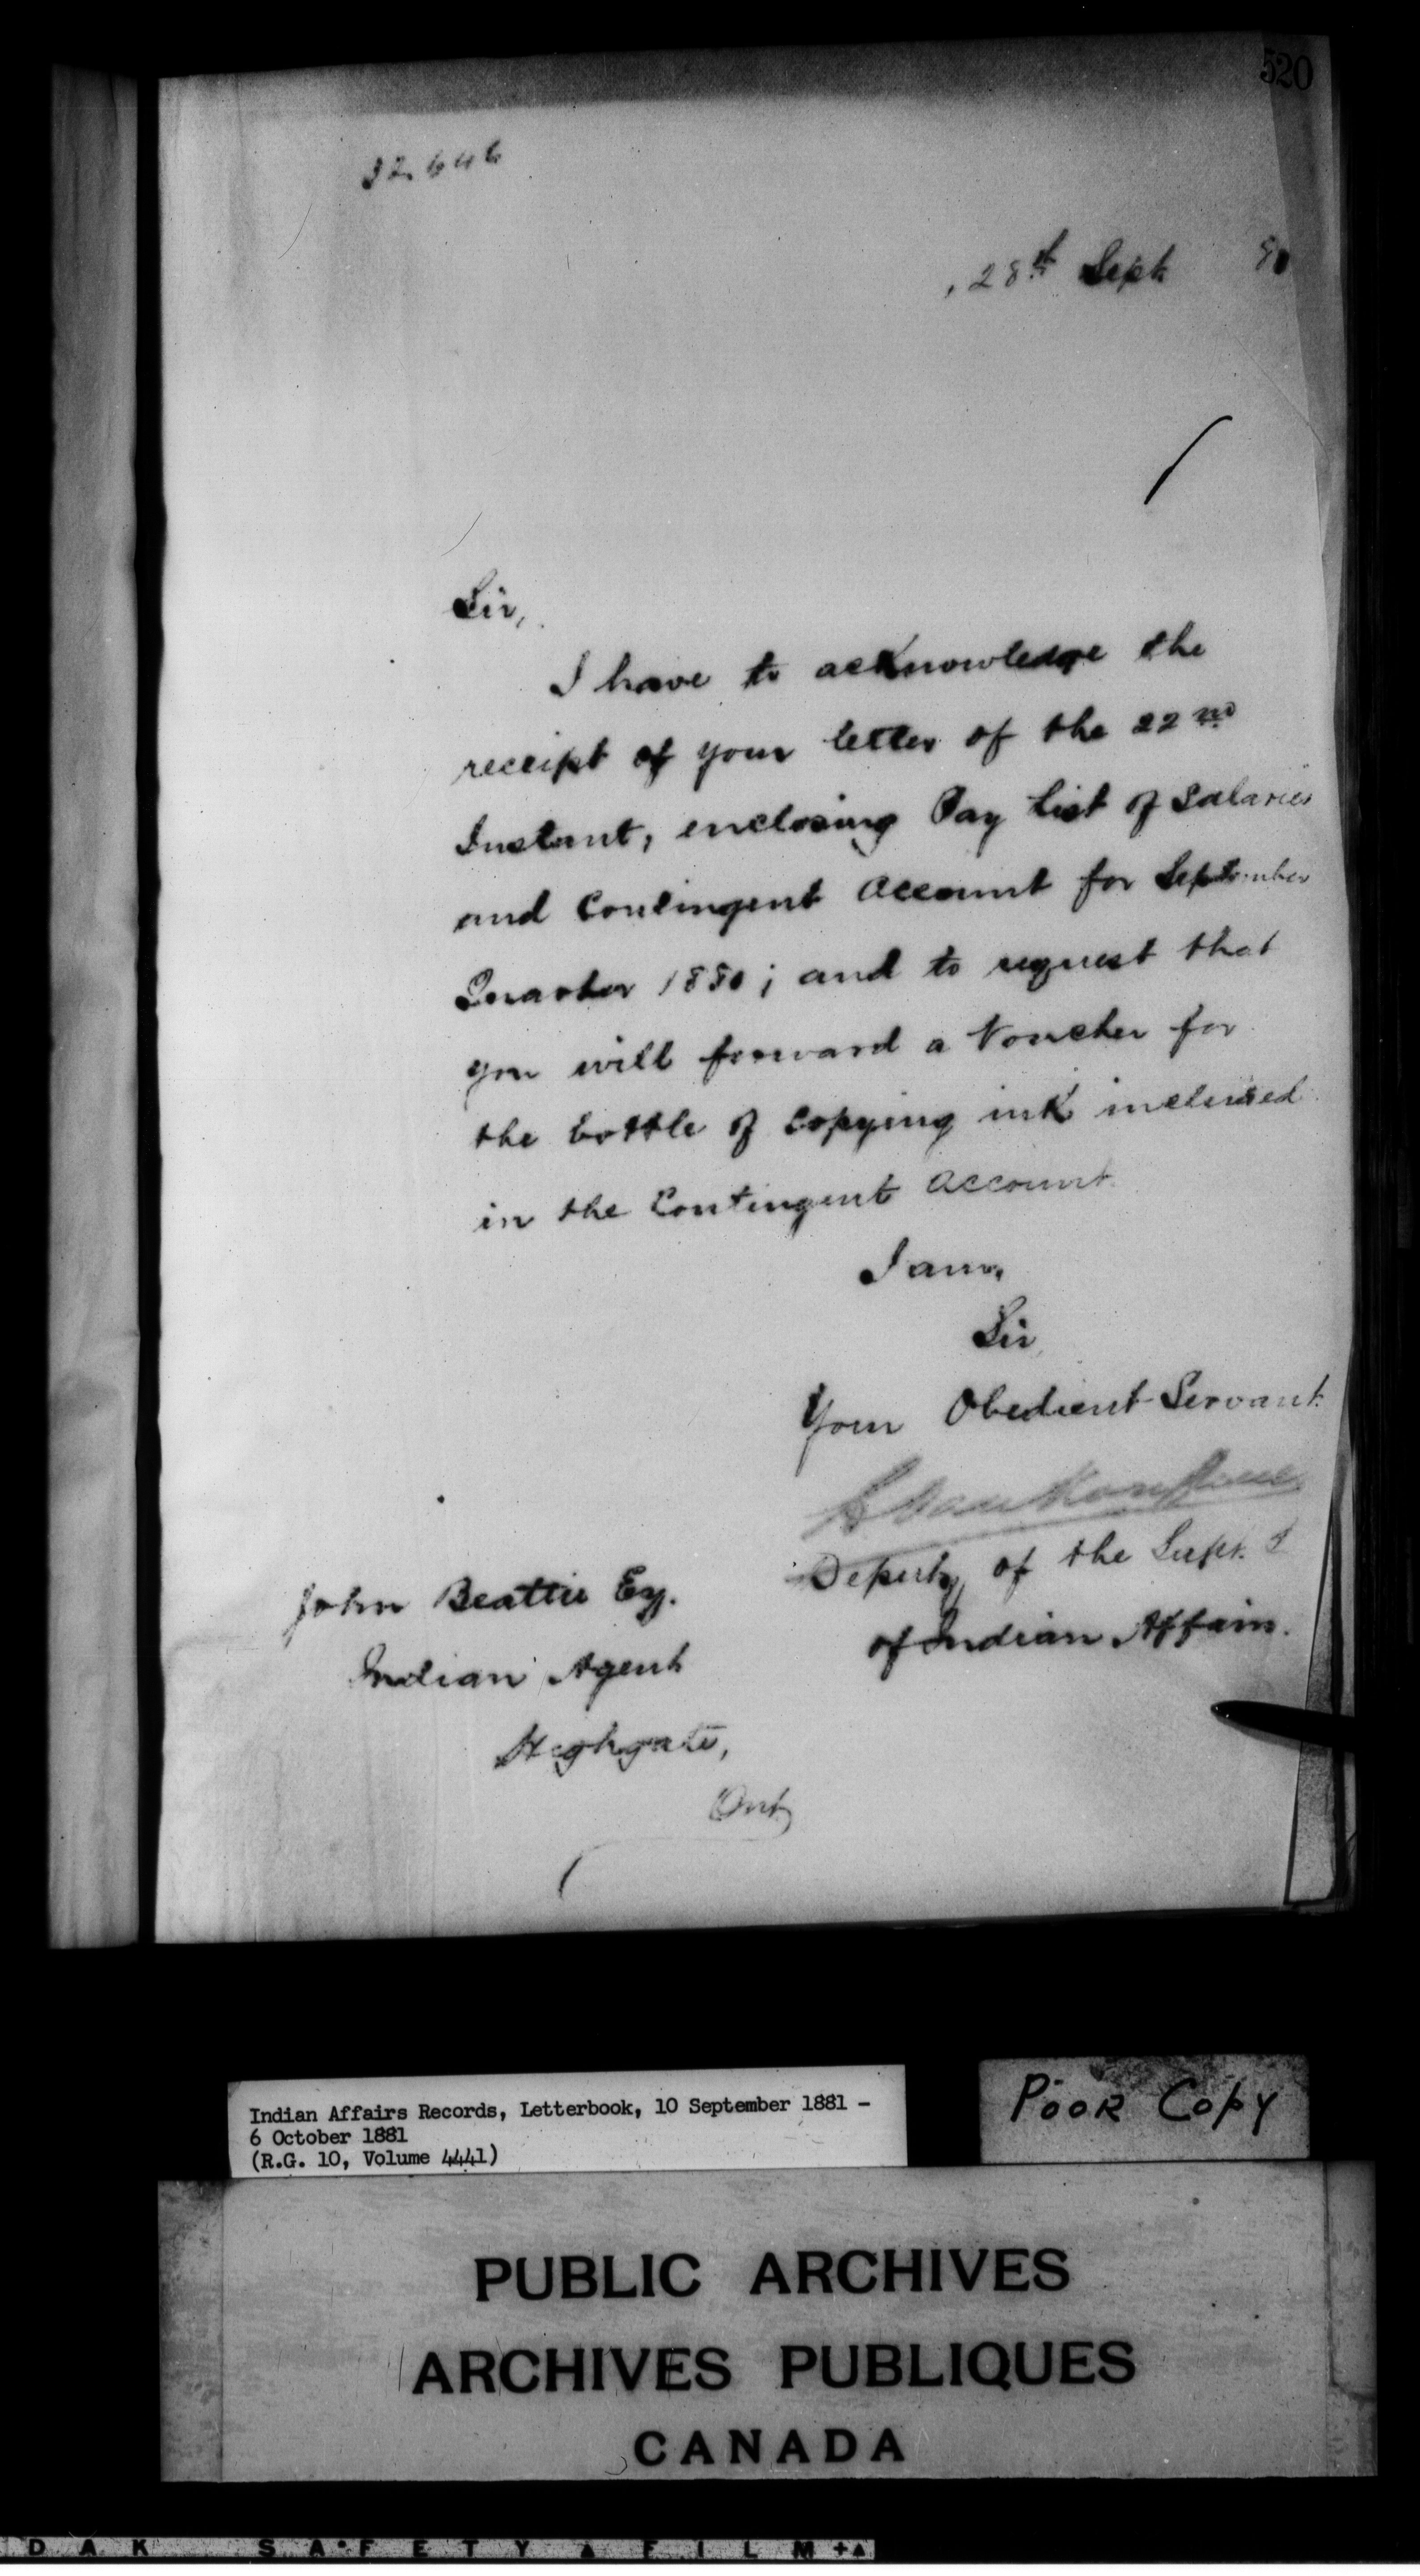 520
32,646
28th Sept 80
Sir,
I have to acknowledge the
receipt of your letter of the 22nd
Instant, enclosing Pay List of Salaries
and Contingent Account for September
Quarter 1880; and to request that
you will forward a Voucher for
the bottle of Copying ink inclused
in the Contingent Account.
I am,
Sir,
Your Obedient Servant
L Vankoughnet
Deputy of the Supt. G
of Indian Affairs.
John Beattie Esq.
Indian Agent
Highgate,
Ont
Indian Affairs Records, Letterbook, 10 September 1881 -
6 October 1881
(R.G. 10, Volume 4441)
Poor Copy
PUBLIC ARCHIVES
ARCHIVES PUBLIQUES
CANADA
DAK SAFETY FILM